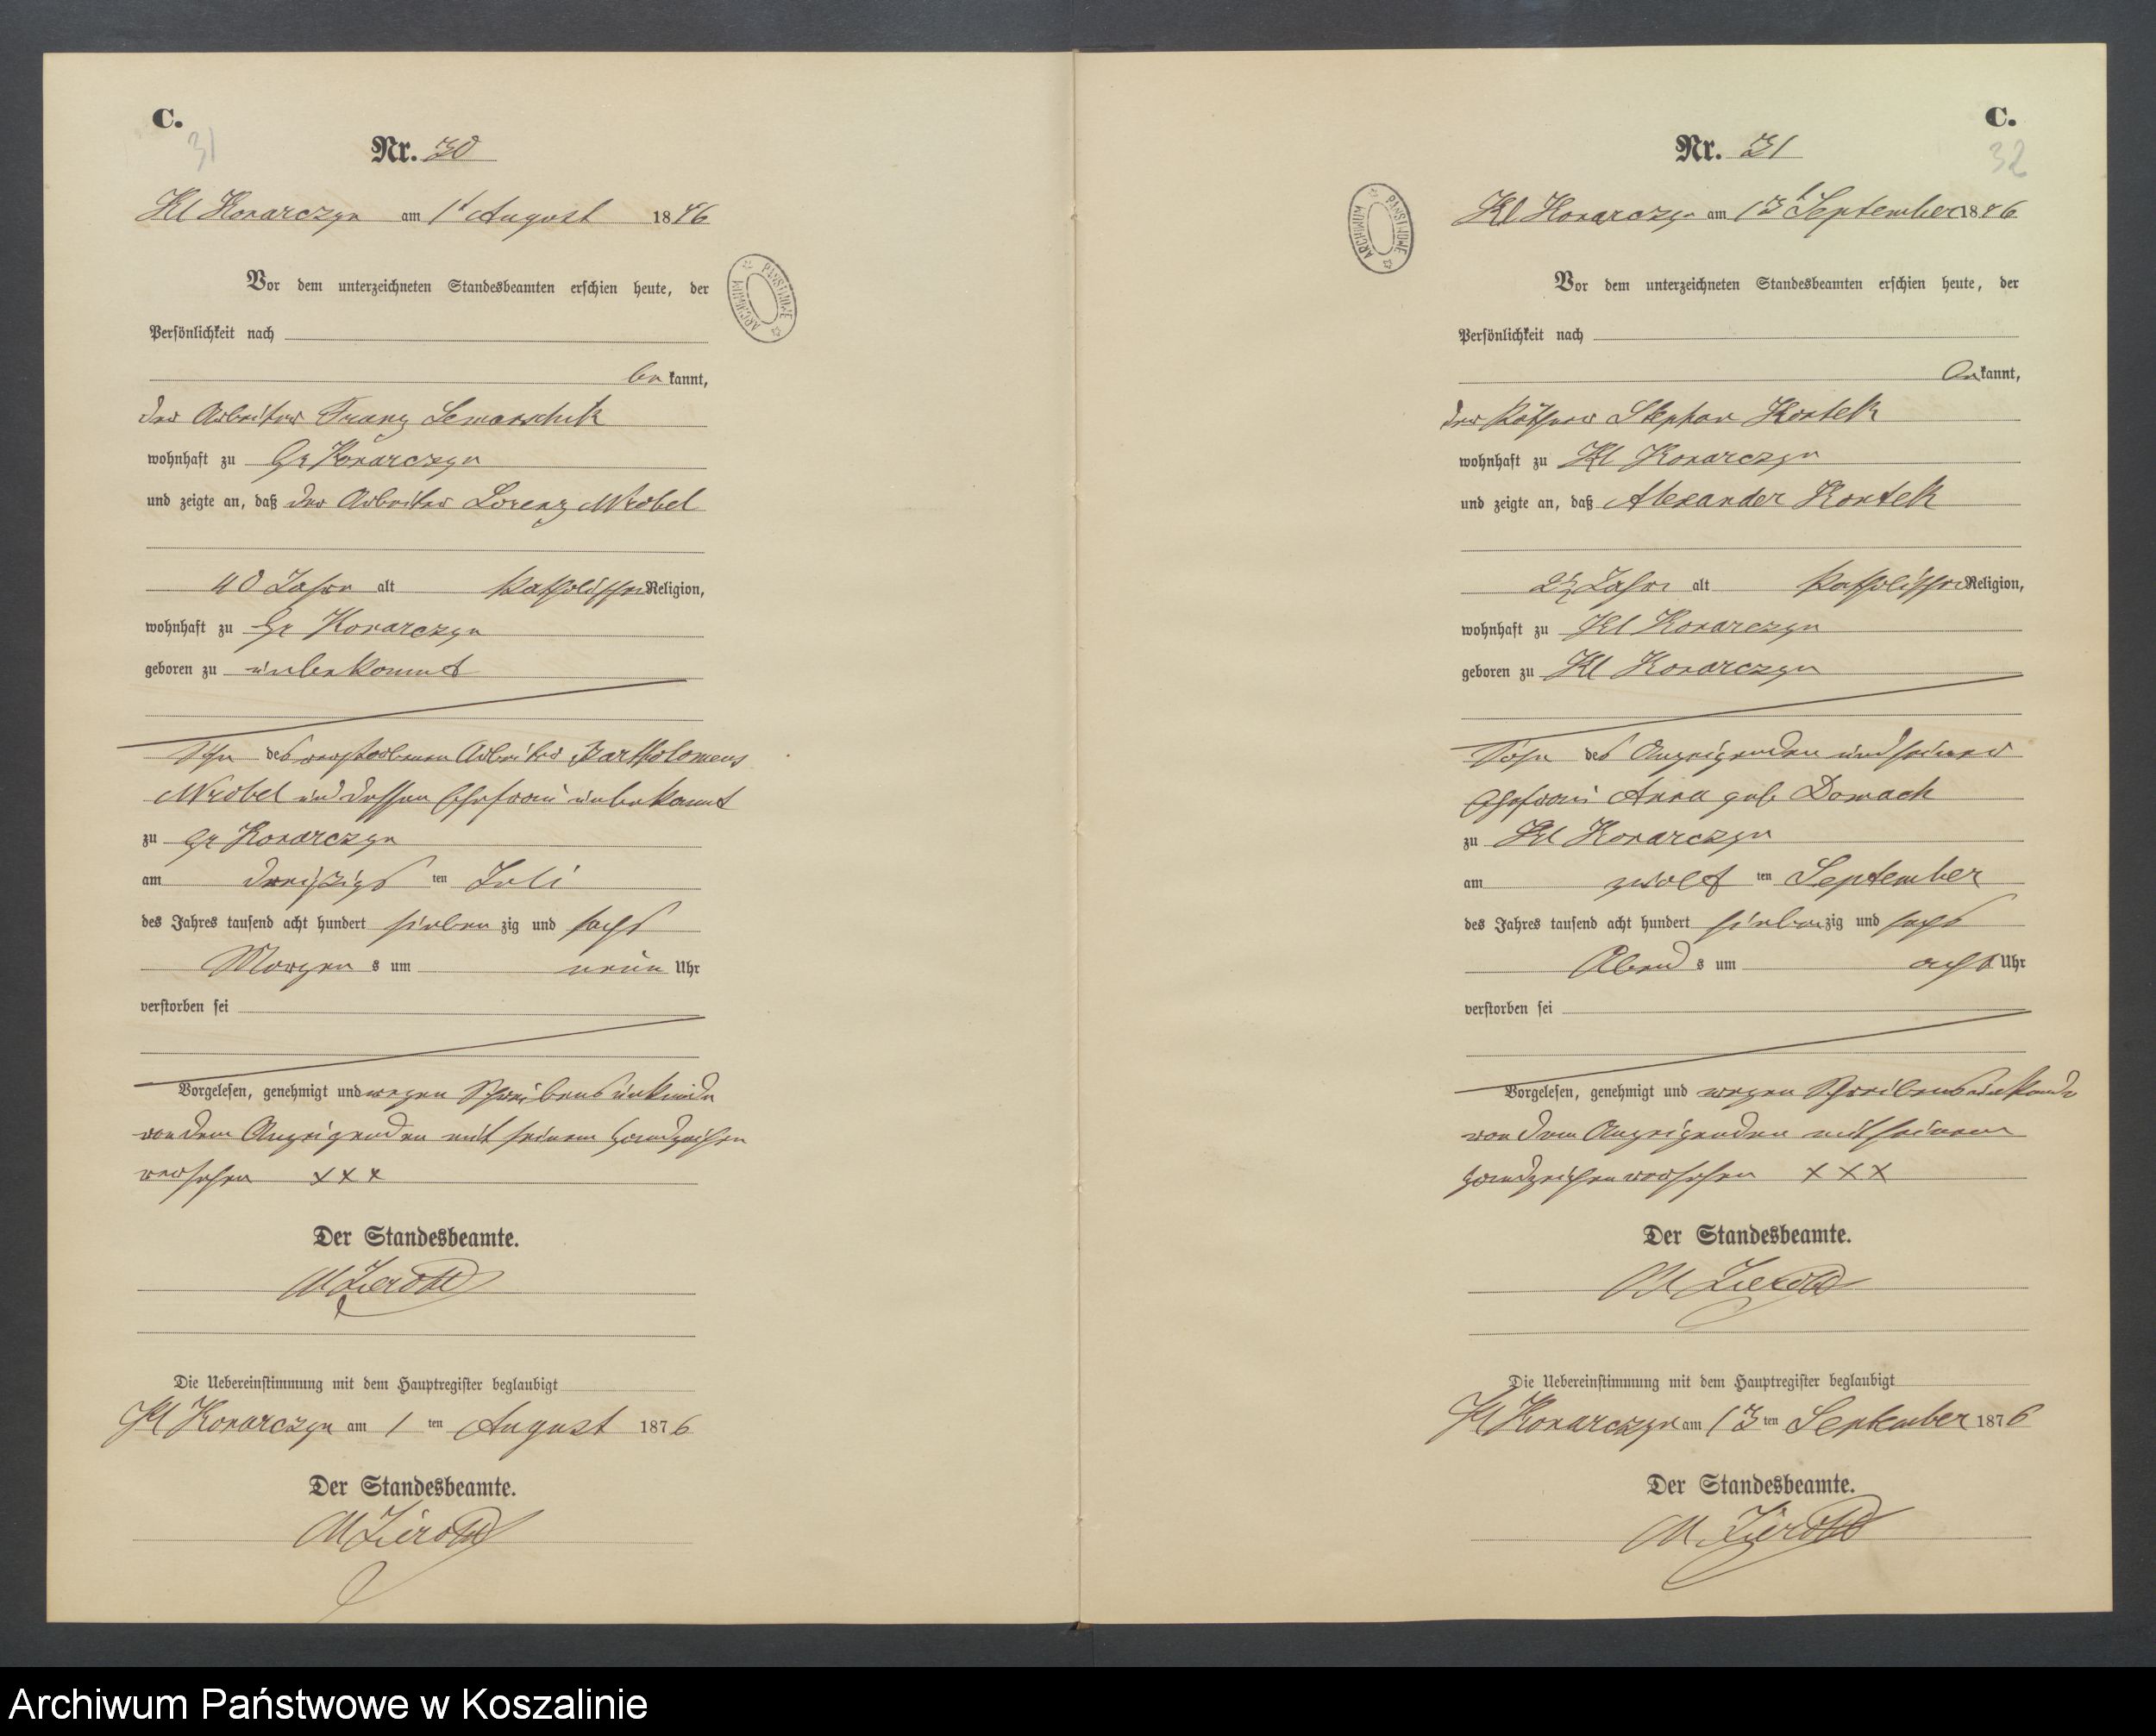 C.
31
Nr. 30
Kl Konarczyn am 1t August 1876
Vor dem unterzeichneten Standesbeamten erschien heute, der
Persönlichkeit nach
be kannt,
der Arbeiter Franz Lemanschik
wohnhaft zu Gr Konarczyn
und zeigte an, daß der Arbeiter Lorenz Wrobel
40 Jahre alt katholischer Religion,
wohnhaft zu Gr Konarczyn
geboren zu unbekannt
Sohn des verstorbenen Arbeiter Bartholomeus
Wrobel und dessen Ehefrau unbekannt
zu Gr Konarczyn
am dreißigs ten Juli
des Jahres tausend acht hundert sieben zig und sechs
Morgen s um neun Uhr
verstorben sei
Vorgelesen, genehmigt und wegen Schreibensunkunde
von dem Anzeigenden mit seinem Handzeichen
versehen x x x
Der Standesbeamte.
M Zierold
Die Uebereinstimmung mit dem Hauptregister beglaubigt
Kl Konarczyn am 1 ten August 1876
Der Standesbeamte.
M Zierold
ARCHIWUM PAŃSTWOWE
C.
32
Nr. 31
Kl Konarczyn am 13t September 1876
Vor dem unterzeichneten Standesbeamten erschien heute, der
Persönlichkeit nach
be kannt,
der Käthner Stephan
wohnhaft zu Kl Konarczyn
und zeigte an, daß Alexander
Jahre alt katholischer Religion,
wohnhaft zu Kl Konarczyn
geboren zu Kl Konarczyn
Sohn des Anzeigenden und seiner
Ehefrau Anna geb Domach
zu Kl Konarczyn
am zwölf ten September
des Jahres tausend acht hundert sieben zig und sechs
Abend s um acht Uhr
verstorben sei
Vorgelesen, genehmigt und wegen Schreibensunkunde
von dem Anzeigenden mit seinem
Handzeichen versehen x x x
Der Standesbeamte.
M Zierold
Die Uebereinstimmung mit dem Hauptregister beglaubigt
Kl Konarczyn am 13 ten September 1876
Der Standesbeamte.
M Zierold
ARCHIWUM PAŃSTWOWE
Archiwum Państwowe w Koszalinie